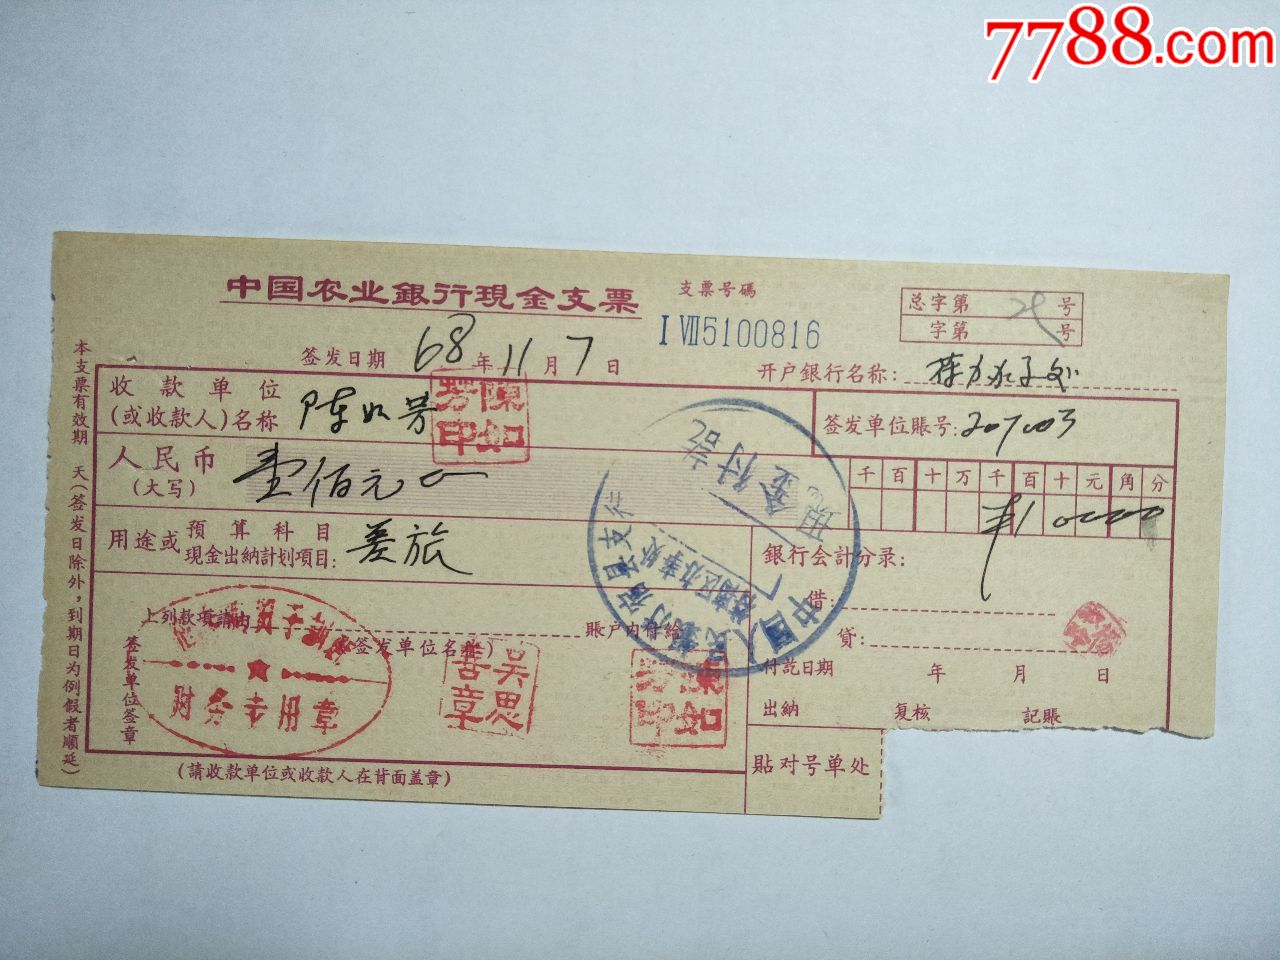 7788.com
中国农业銀行現金支票
支票号碼
IⅦ5100816
总字第 号
字第 号
签发日期 68 年 11 月 7 日
开户銀行名称:
收款单位
(或收款人)名称 陈如芳
陳如芳印
签发单位賬号: 207003
人民币
(大写) 壹佰元
千 百 十 万 千 百 十 元 角 分
¥1 0000
用途或 預算科目
現金出納計划項目: 差旅
銀行会計分录:
借:
貸:
上列款項請由 賬户内付給
(签发单位名称)
签发单位签章
财务专用章
吴思善章
陳如芳印
中国人民 县支行
現金付訖
付訖日期 年 月 日
出納 复核 記賬
貼对号单处
(請收款单位或收款人在背面盖章)
本支票有效期 天(签发日除外,到期日为例假者顺延)